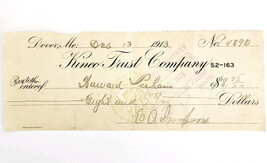 Dover, Me. Dec 13 1913. No. 4890
Kineo Trust Company 52-163
Pay to the order of Howard $8.75
Eight and Dollars
E A Thompson